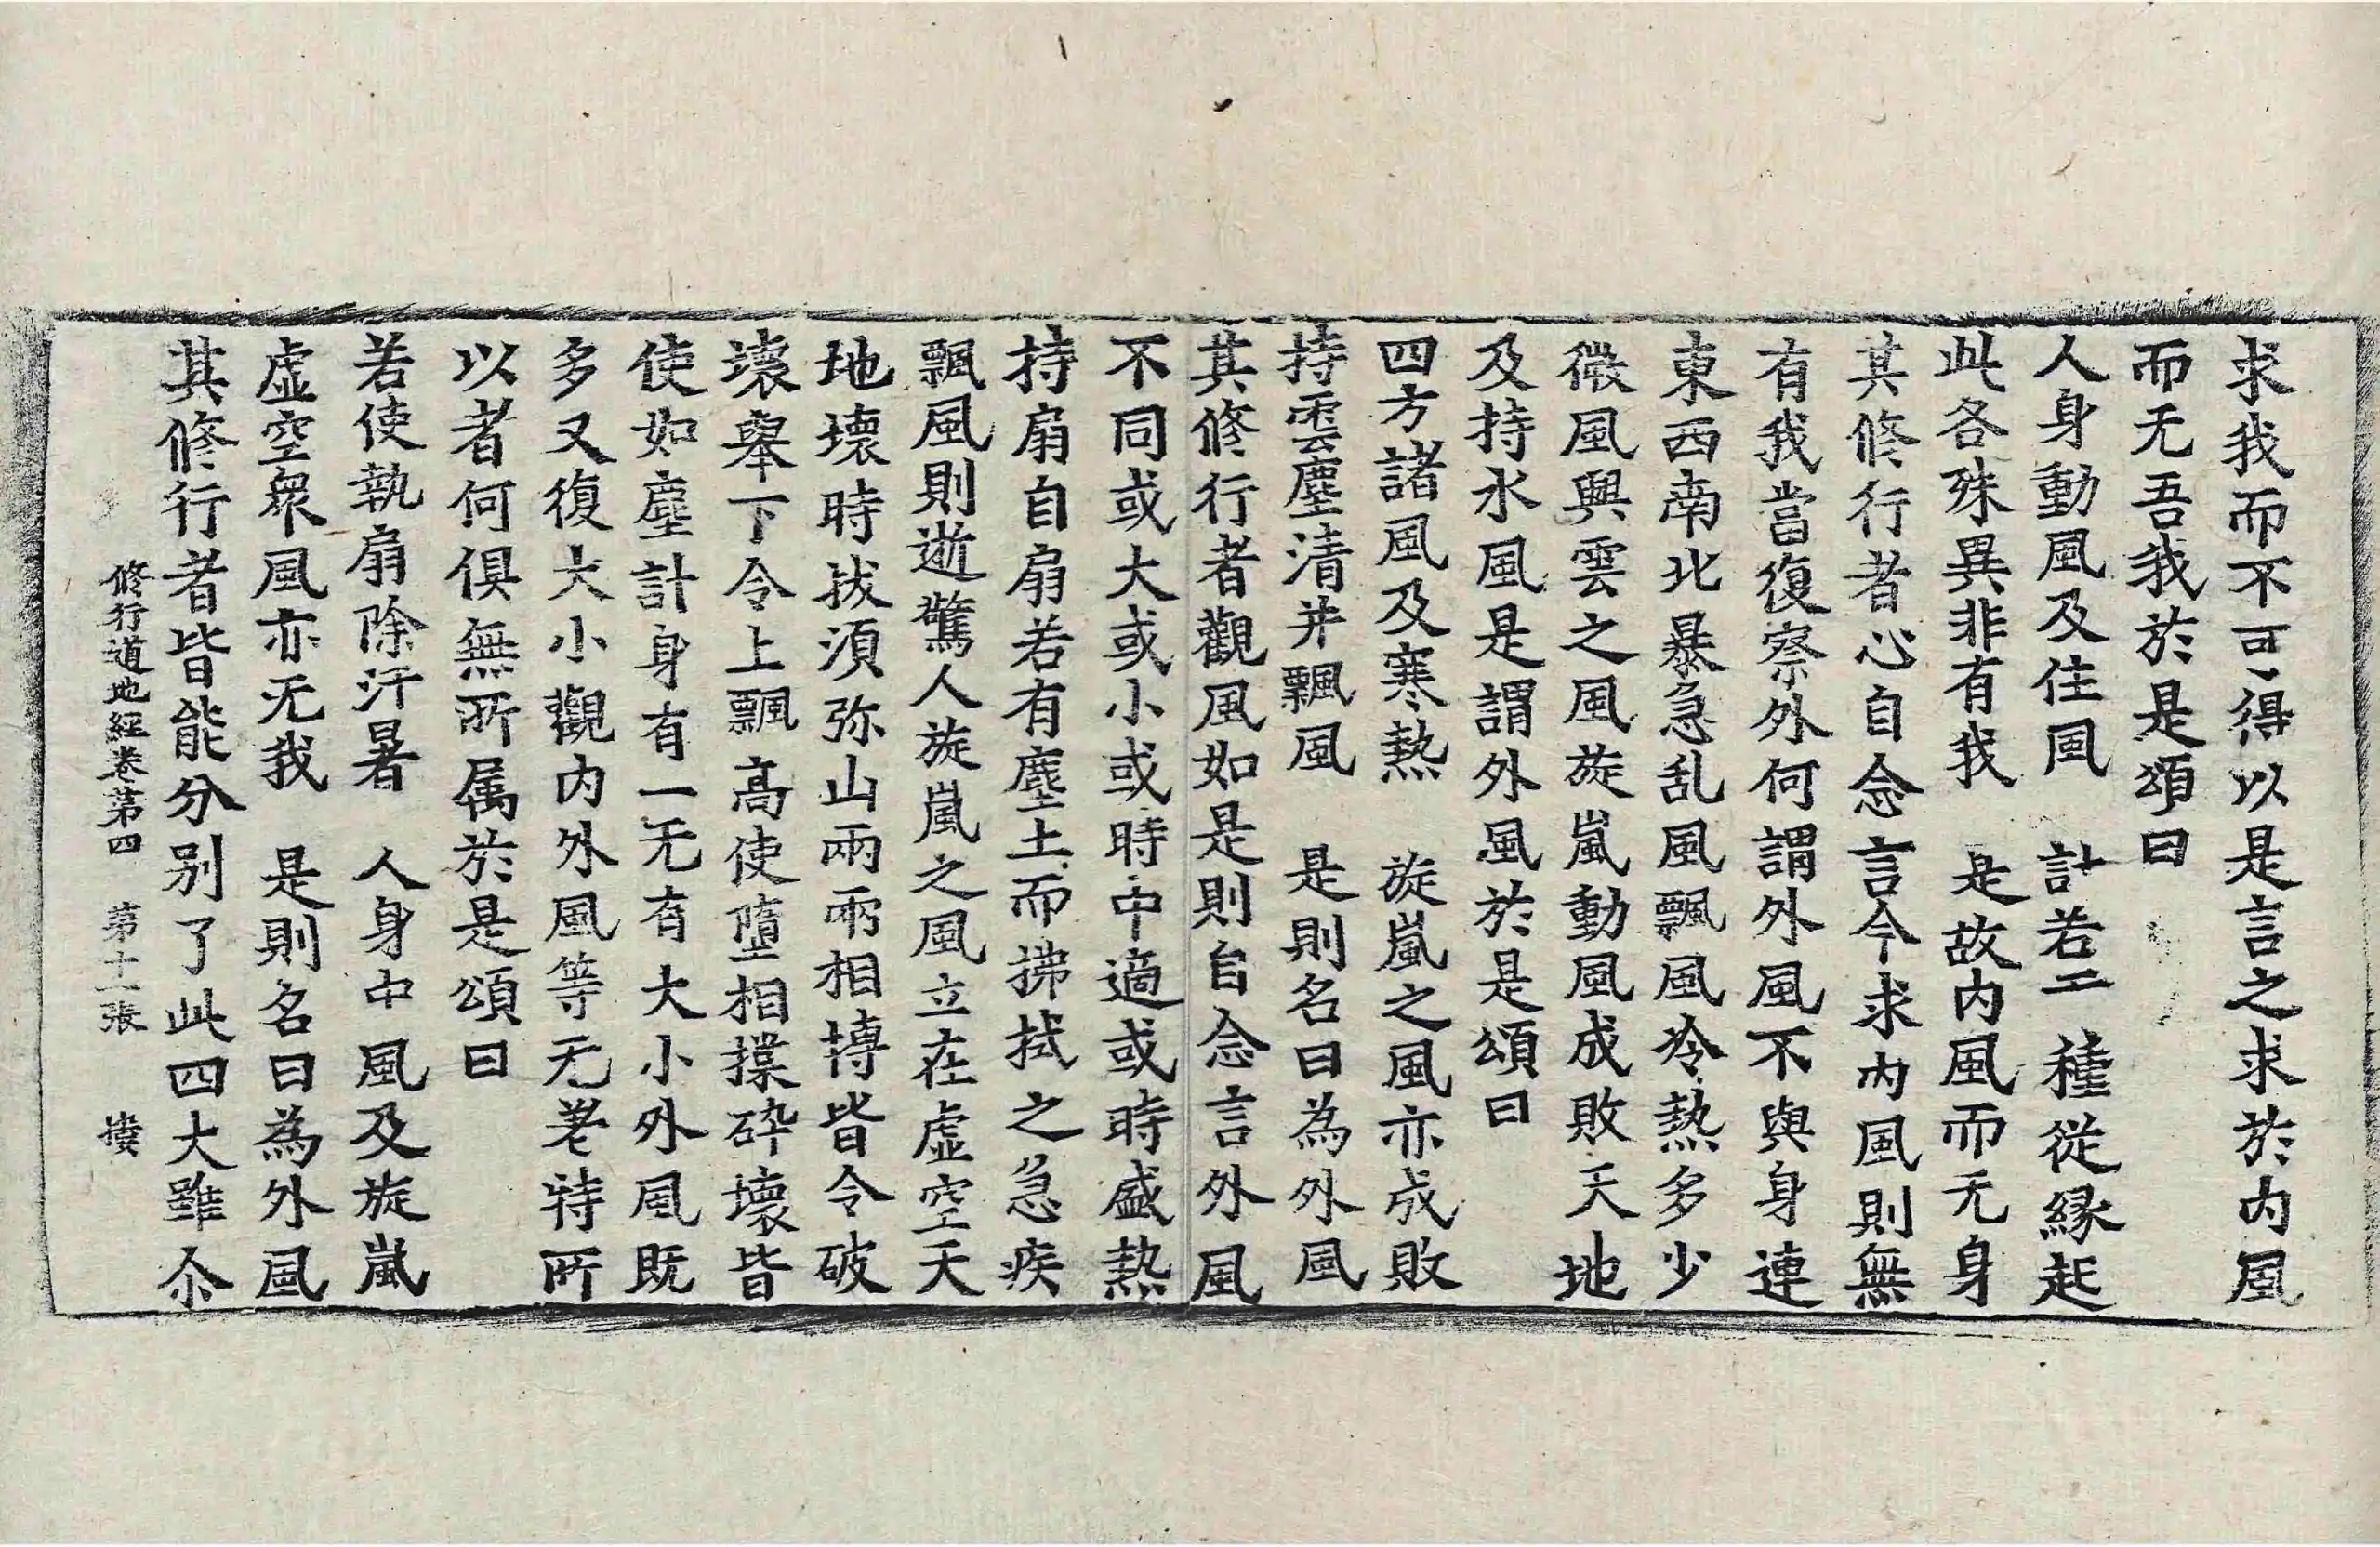 求我而不可得以是言之求於内風
而无吾我於是頌曰
人身動風及住風　計若二種從縁起
此各殊異非有我　是故内風而无身
其修行者心自念言今求内風則無
有我當復察外何謂外風不與身連
東西南北暴急乱風飄風冷熱多少
微風興雲之風旋嵐動風成敗天地
及持水風是謂外風於是頌曰
四方諸風及寒熱　旋嵐之風亦成敗
持雲塵清并飄風　是則名曰為外風
其修行者觀風如是則自念言外風
不同或大或小或時中適或時盛熱
持扇自扇若有塵土而拂拭之急疾
飄風則逝驚人旋嵐之風立在虚空天
地壞時拔須弥山兩兩相搏皆令破
壞舉下令上飄高使墮相揲碎壞皆
使如塵計身有一无有大小外風既
多又復大小觀内外風等无差特所
以者何俱無所属於是頌曰
若使執扇除汗暑　人身中風及旋嵐
虚空衆風亦无我　是則名曰為外風
其修行者皆能分别了此四大雖尒
修行道地經卷第四　第十一張　樓